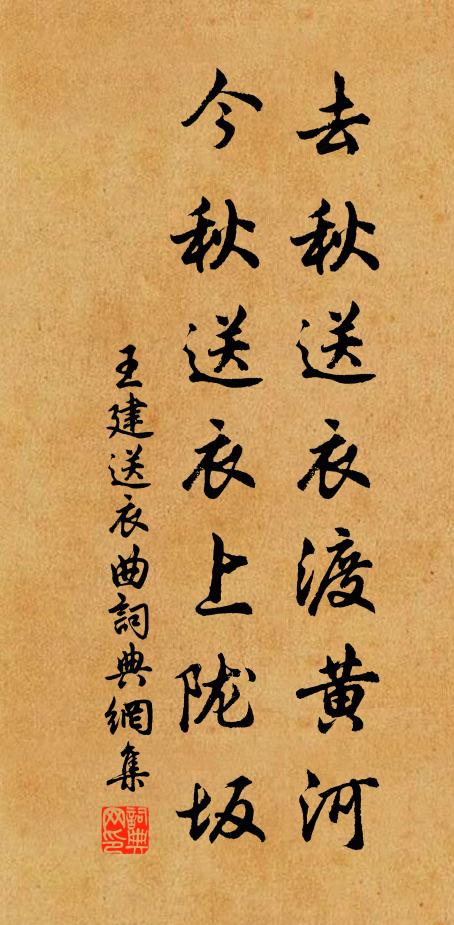 去秋送衣渡黄河
今秋送衣上陇坂
王建送衣曲詞典網集
詞典網印